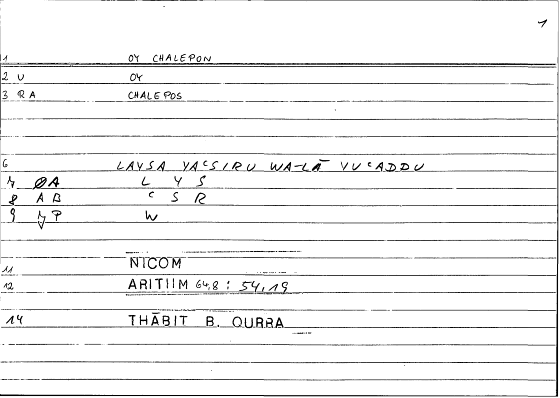 1
1 OY CHALEPON
2 U OY
3 RA CHALEPOS
6 LAYSA YAᶜSIRU WA-LĀ YUᶜADDU
7 ØA L Y S
8 AB ᶜ S R
9 P W
11 NICOM
12 ARITIIM 64,8 : 54,19
14 THĀBIT B. QURRA